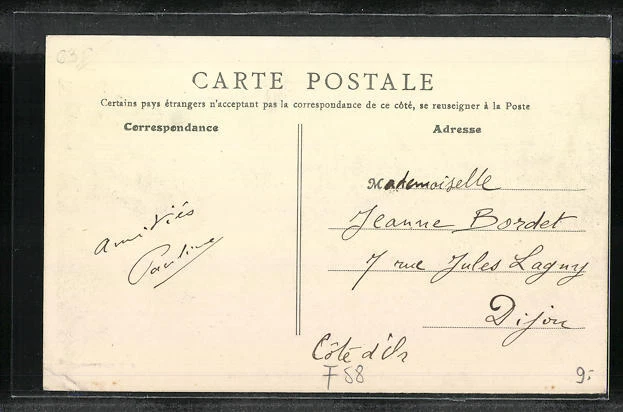 CARTE POSTALE
Certains pays étrangers n'acceptant pas la correspondance de ce côté, se renseigner à la Poste
Correspondance
Adresse
Mademoiselle
Jeanne Bordet
7 rue Jules Lagny
Dijon
Côte d'Or
amitiés
Pauline
F 58
9.-